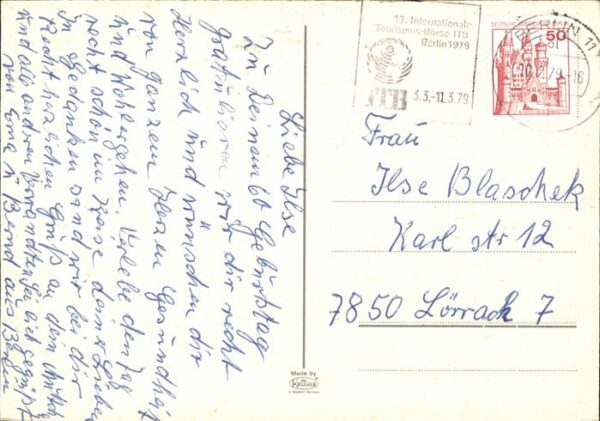 Liebe Ilse
Zu Deinem 66 Geburtstag
gratulieren wir dir recht
Herzlich und wünschen dir
von ganzem Herzen Gesundheit
und Wohlergehen. Verlebe den Tag
recht schön im Kreise deiner Lieben
in Gedanken sind wir bei dir
Recht herzlichen Gruß an dein
und alle anderen Verwandten Sei lieb gegrüßt
von Erna u Bernd aus Berlin
13. Internationale
Tourismus-Börse ITB
Berlin 1979
ITB 3.3.-11.3.79
DEUTSCHE BUNDESPOST BERLIN
50
BERLIN 11
Frau
Ilse Blaschek
Karl str 12
7850 Lörrach 7
Made by
Krüger